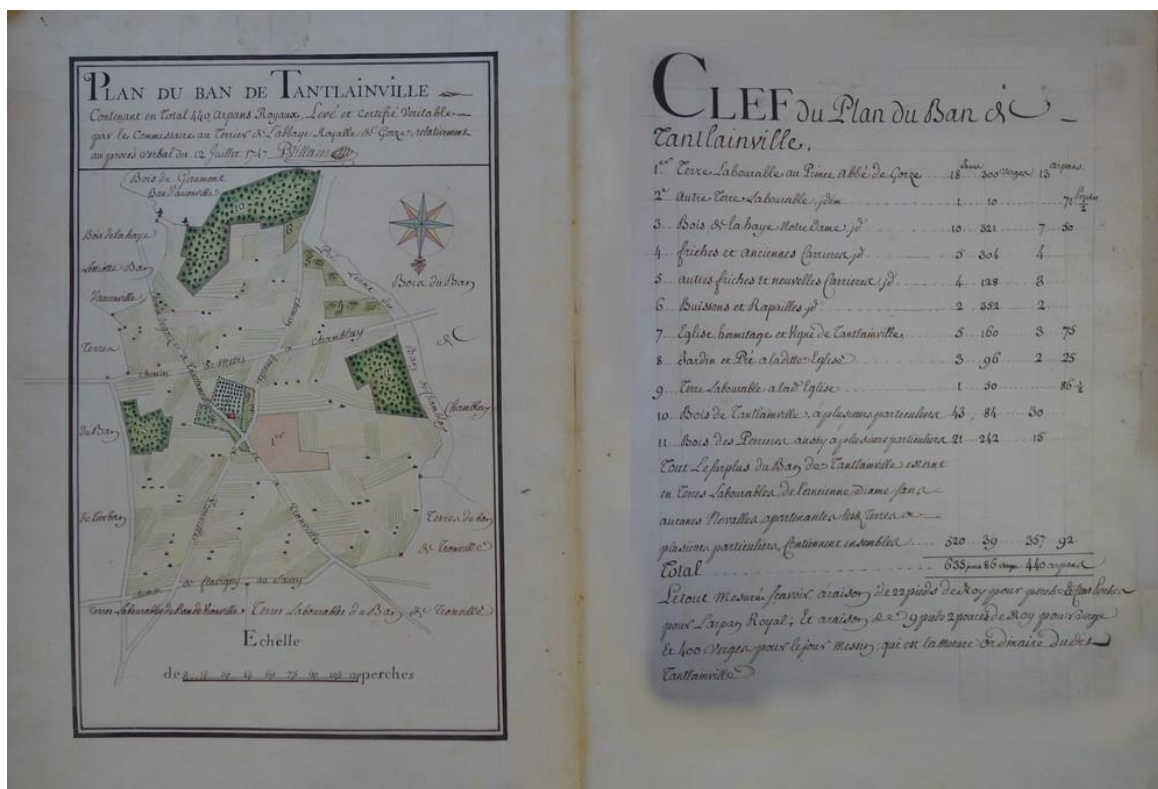 PLAN DU BAN DE TANTLAINVILLE
Contenant en Total 440 arpans Royaux, Levé et certifié Veritable
par le Commissaire au Terrier de L'abbaye Royalle de Gorze relativement
au procès verbal du 12 Juillet 1747 Villain
Bois de Gaumont
Ban d'auconville
10
8
Bois de la haye
Bois du Ban
Ban
d'auconville
Terres
Chemin
St Mars
a Chamblay
de
11
Chambley
du Ban
1er
Terres de ban
de Tronville
Xonville
chemin de flavigny au Sauley
Terres Labourables du Ban de Vionville
Terres Labourables du Ban de Tronville
Echelle
de perches
CLEF du Plan du Ban de
Tantlainville.
Jours verges arpans
1er Terre Labourable au Prince abbé de Gorze 18 300 13
2e Autre Terre Labourable, idem 1 10 71 1/2
3 Bois de la haye Notre Dame, id 10 321 7 50
4 friches et anciennes Carrieres id 5 304 4
5 autres friches et nouvelles Carrieres id 4 128 3
6 Buissons et Rapailles id 2 352 2
7 Eglise, hermitage et Vigne de Tantlainville 5 160 3 75
8 Jardin et Pré a ladette Eglise 3 96 2 25
9 Terre Labourable a lad Eglise 1 50 86 1/2
10 Bois de Tantlainville, à plusieurs particuliers 43 84 30
11 Bois des Perrines aussy à plusieurs particuliers 21 242 15
Tout Le surplus du Ban de Tantlainville
en Terres Labourables, de l'ancienne dixme sans
aucunes Novalles apartenantes Terres a
plusieurs particuliers, Contiennent ensembles 520 39 357 92
Total 635 jours 86 verges 440 arpans
Le tout Mesuré scavoir à raison de 22 pieds de Roy pour perche et Cens Perches
pour L'arpan Royal; Et a raison de 9 pieds 2 pouces de Roy pour Verge
Et 400 Verges pour le jour Mesure qui est la Mesure ordinaire dudit
Tantlainville